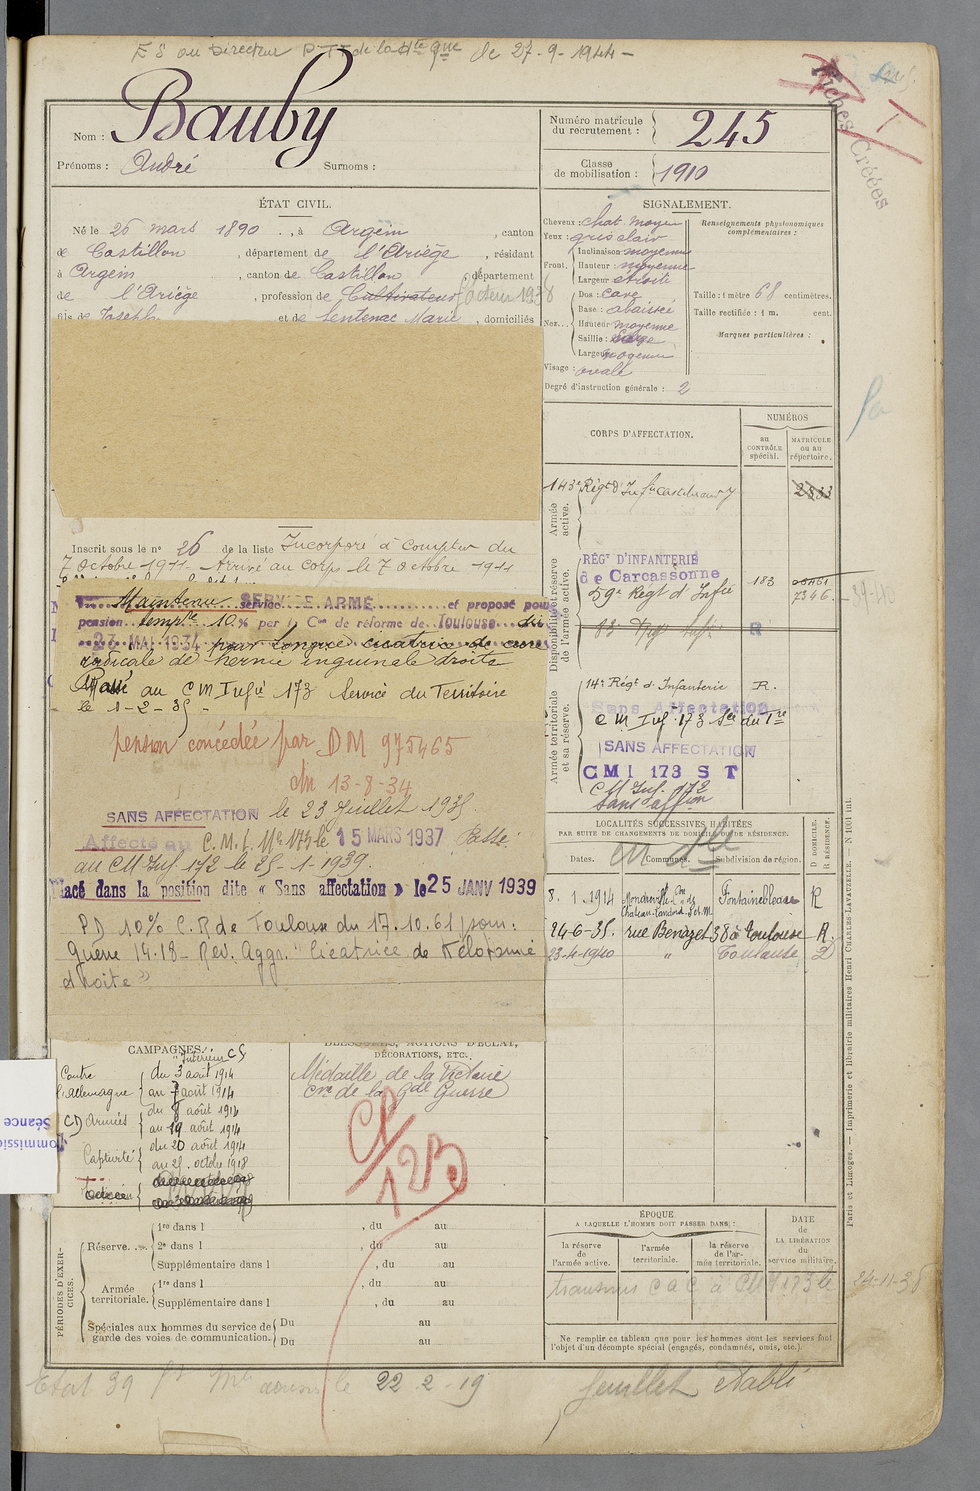 ES au Directeur PTT de la Hte Gne le 27-9-1944-
Fiches Créées
Nom : Bauby
Prénoms : André Surnoms :
Numéro matricule du recrutement : 245
Classe de mobilisation : 1910
ÉTAT CIVIL.
Né le 26 mars 1890, à Argein, canton
de Castillon, département de l'Ariège, résidant
à Argein, canton de Castillon, département
de l'Ariège, profession de Cultivateur facteur 1938
fils de Joseph et de Sentenac Marie, domiciliés
SIGNALEMENT.
Cheveux : chat. moyen
Yeux : gris clair
Front. Inclinaison : moyenne
Hauteur : moyenne
Largeur : étroite
Nez... Dos : cave
Base : abaissée
Hauteur : moyenne
Saillie :
Largeur : moyenne
Visage : ovale
Renseignements physionomiques complémentaires :
Taille : 1 mètre 68 centimètres.
Taille rectifiée : 1 m. cent.
Marques particulières :
Degré d'instruction générale : 2
Inscrit sous le n° 26 de la liste Incorporé à compter du
7 octobre 1911 - Arrivé au corps le 7 octobre 1911
Maintenu service SERVICE ARMÉ et proposé pour
pension temp^re 10 % par la C^on de réforme de Toulouse du
23 MAI 1934 pour longue cicatrice de cure
radicale de hernie inguinale droite
Passé au C M Infie 173 Service du Territoire
le 1-2-35 -
pension concédée par DM 975465
du 13-8-34
SANS AFFECTATION le 23 Juillet 1935.
Affecté au C.M.I. N° 173 le 15 MARS 1937 Passé
au CM Inf. 172 le 25-1-1939.
Placé dans la position dite « Sans affectation » le 25 JANV 1939
PD 10% C.R de Toulouse du 17.10.61 pour :
Guerre 14-18 - Rev. Aggr. "Cicatrice de
droite"
CORPS D'AFFECTATION.
NUMÉROS
au CONTRÔLE spécial.
MATRICULE ou au répertoire.
Armée active.
143e Régt d'Inf ie Castelnaudary
Disponibilité et réserve de l'armée active.
RÉGt D'INFANTERIE
de Carcassonne
59e Régt d'Infie 183 7346
83e Régt Infie R
Armée territoriale et sa réserve.
14e Régt d'Infanterie R.
Sans Affectation
C M Inf. 173 Sce du Tre
SANS AFFECTATION
CMI 173 S T
CM Inf. 172
Sans affon
LOCALITÉS SUCCESSIVES HABITÉES
PAR SUITE DE CHANGEMENTS DE DOMICILE OU DE RÉSIDENCE.
Dates. Communes. Subdivision de région. D. DOMICILE. R. RÉSIDENCE.
8.1.1914 Mondreville Con de Chateau-Landon S. et M. Fontainebleau R
24-6-35. rue Benazet 38 à Toulouse R.
23-4-1940 " Toulouse D
CAMPAGNES.
Intérieur CS
Contre l'Allemagne du 3 août 1914
au 7 août 1914
CD Armées du 8 août 1914
au 19 août 1914
Captivité du 20 août 1914
au 25 octobre 1918
BLESSURES, ACTIONS D'ÉCLAT,
DÉCORATIONS, ETC.
Médaille de la Victoire
Cve de la Gde Guerre
PÉRIODES D'EXERCICES.
Réserve.... 1re dans l , du au
2e dans l , du au
Supplémentaire dans l , du au
Armée territoriale. 1re dans l , du au
Supplémentaire dans l , du au
Spéciales aux hommes du service de garde des voies de communication. Du au
Du au
ÉPOQUE
A LAQUELLE L'HOMME DOIT PASSER DANS :
la réserve de l'armée active.
l'armée territoriale.
la réserve de l'armée territoriale.
DATE de LA LIBÉRATION du service militaire.
transmis C à C à CM 173 le 24-11-38
Ne remplir ce tableau que pour les hommes dont les services font
l'objet d'un décompte spécial (engagés, condamnés, omis, etc.).
Paris et Limoges. — Imprimerie et librairie militaires Henri CHARLES-LAVAUZELLE. — N° 1001 int.
le 22-2-19
feuillet établi